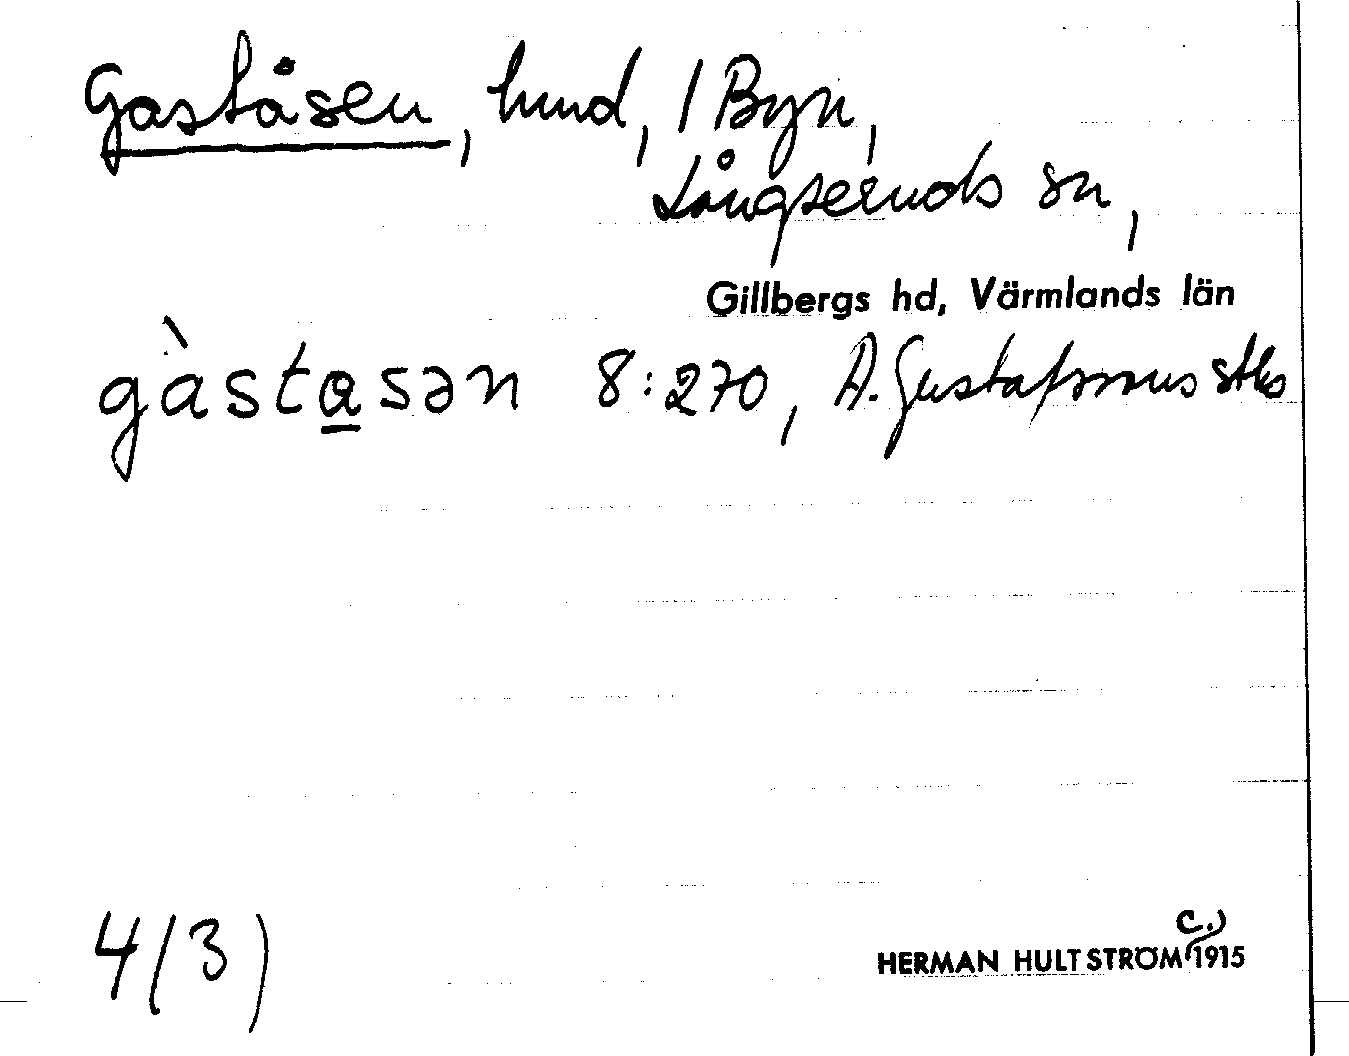 Gaståsen, hmd, 1 Byn,
Långseruds sn,
Gillbergs hd, Värmlands län
gàsta̲sən 8:270, A. Gustafssons stks
4(3)
c.)
HERMAN HULTSTRÖM 1915